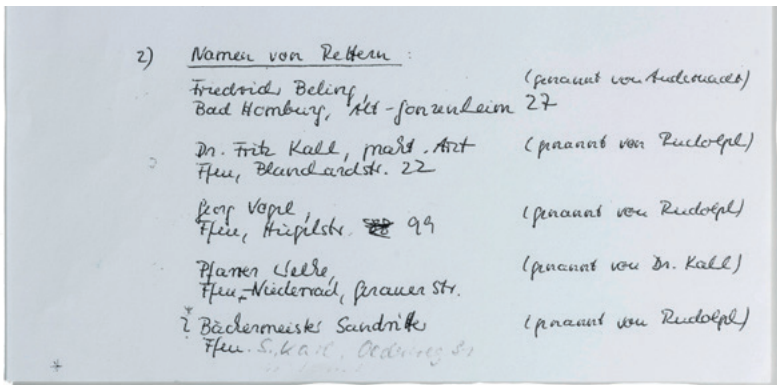 2) Namen von Rettern:
Friedrich Beling, (genannt von Andernacht)
Bad Homburg, Alt-Gonzenheim 27
Dr. Fritz Kahl, prakt. Arzt (genannt von Rudolph)
Ffm, Blanchardstr. 22
Georg Vogel, (genannt von Rudolph)
Ffm, Hügelstr. 99
Pfarrer Welke, (genannt von Dr. Kahl)
Ffm-Niederrad, Gerauer Str.
? Bäckermeister (genannt von Rudolph)
Ffm.
*